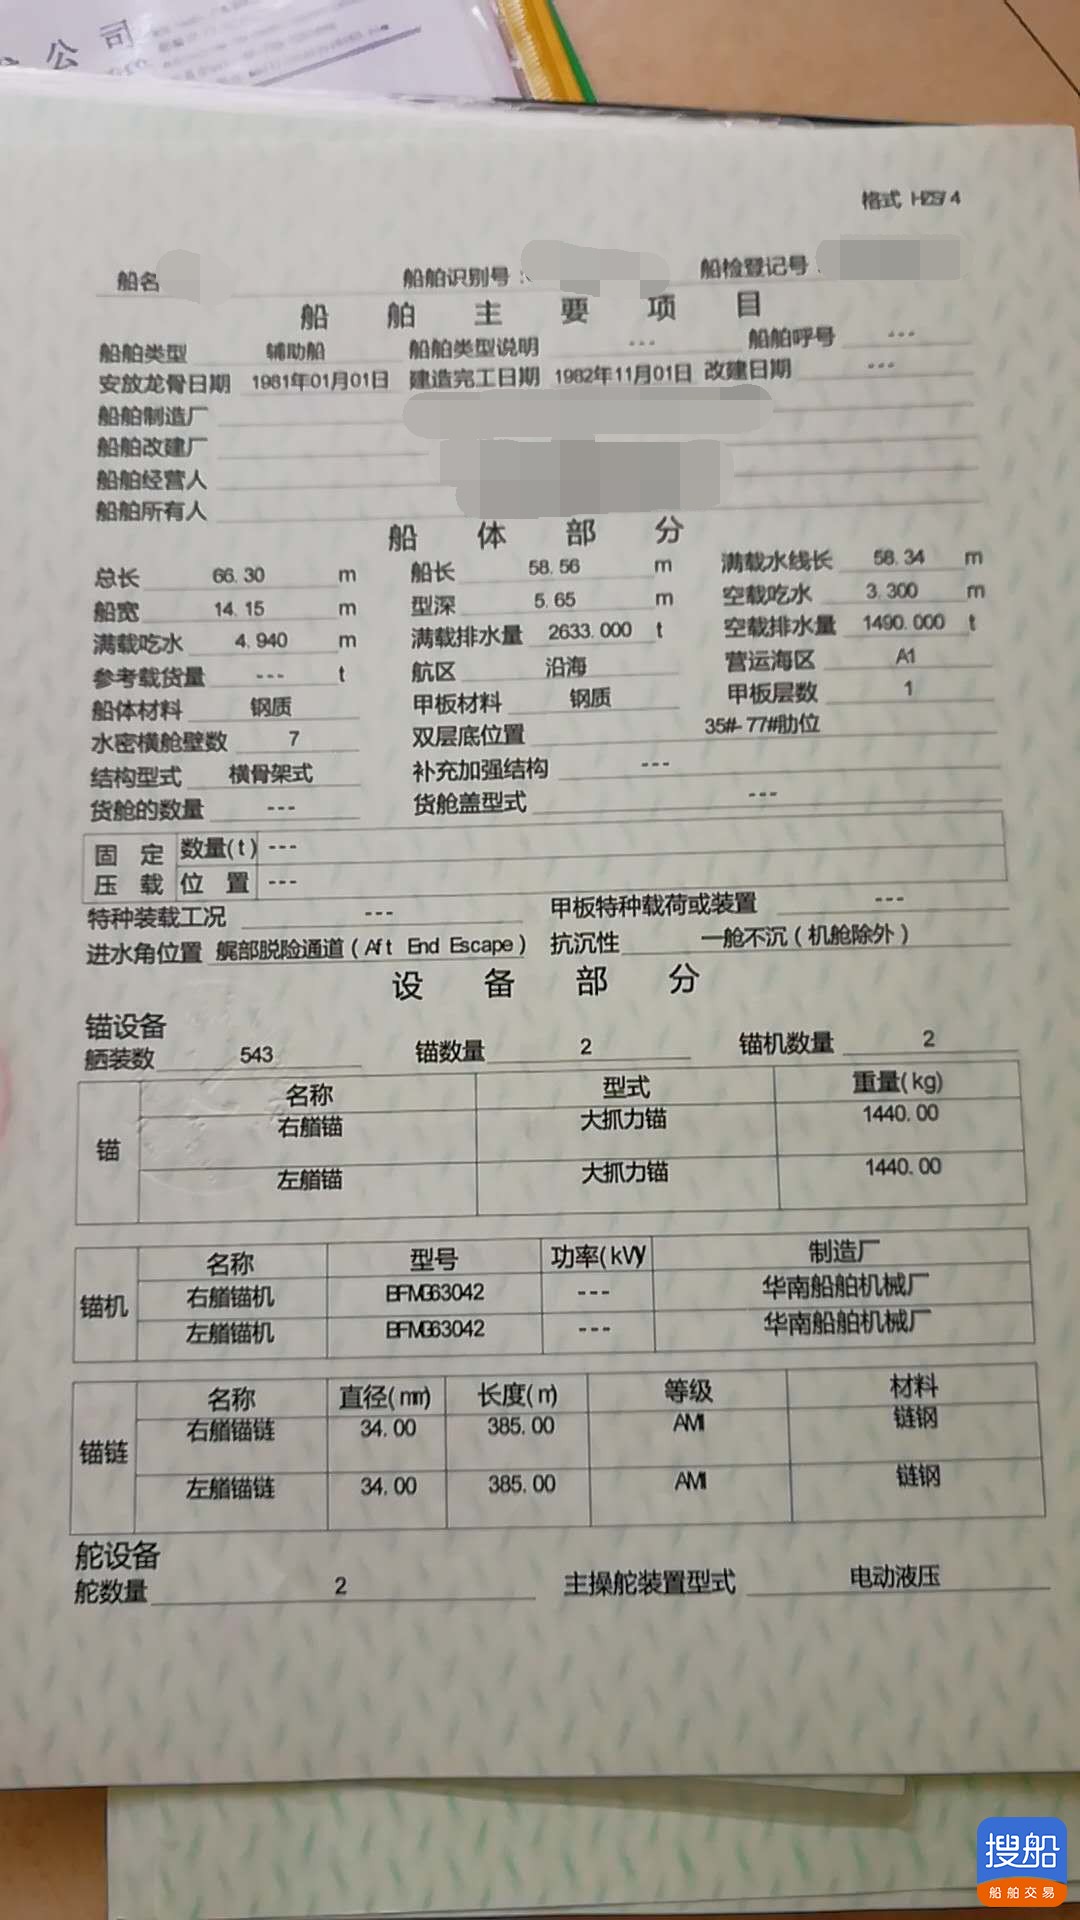 公司
格式 HZS/4
船名 船舶识别号: 船检登记号:
船舶主要项目
船舶类型 辅助船 船舶类型说明 --- 船舶呼号 ---
安放龙骨日期 1981年01月01日 建造完工日期 1982年11月01日 改建日期 ---
船舶制造厂
船舶改建厂
船舶经营人
船舶所有人
船体部分
总长 66.30 m 船长 58.56 m 满载水线长 58.34 m
船宽 14.15 m 型深 5.65 m 空载吃水 3.300 m
满载吃水 4.940 m 满载排水量 2633.000 t 空载排水量 1490.000 t
参考载货量 --- t 航区 沿海 营运海区 A1
船体材料 钢质 甲板材料 钢质 甲板层数 1
水密横舱壁数 7 双层底位置 35#-77#肋位
结构型式 横骨架式 补充加强结构 ---
货舱的数量 --- 货舱盖型式 ---
固定 数量(t) ---
压载 位置 ---
特种装载工况 --- 甲板特种载荷或装置 ---
进水角位置 艉部脱险通道(Aft End Escape) 抗沉性 一舱不沉(机舱除外)
设备部分
锚设备
舾装数 543 锚数量 2 锚机数量 2
名称 型式 重量(kg)
锚 右艏锚 大抓力锚 1440.00
左艏锚 大抓力锚 1440.00
名称 型号 功率(kW) 制造厂
锚机 右艏锚机 BFMG63042 --- 华南船舶机械厂
左艏锚机 BFMG63042 --- 华南船舶机械厂
名称 直径(mm) 长度(m) 等级 材料
锚链 右艏锚链 34.00 385.00 AM1 链钢
左艏锚链 34.00 385.00 AM1 链钢
舵设备
舵数量 2 主操舵装置型式 电动液压
搜船
船舶交易